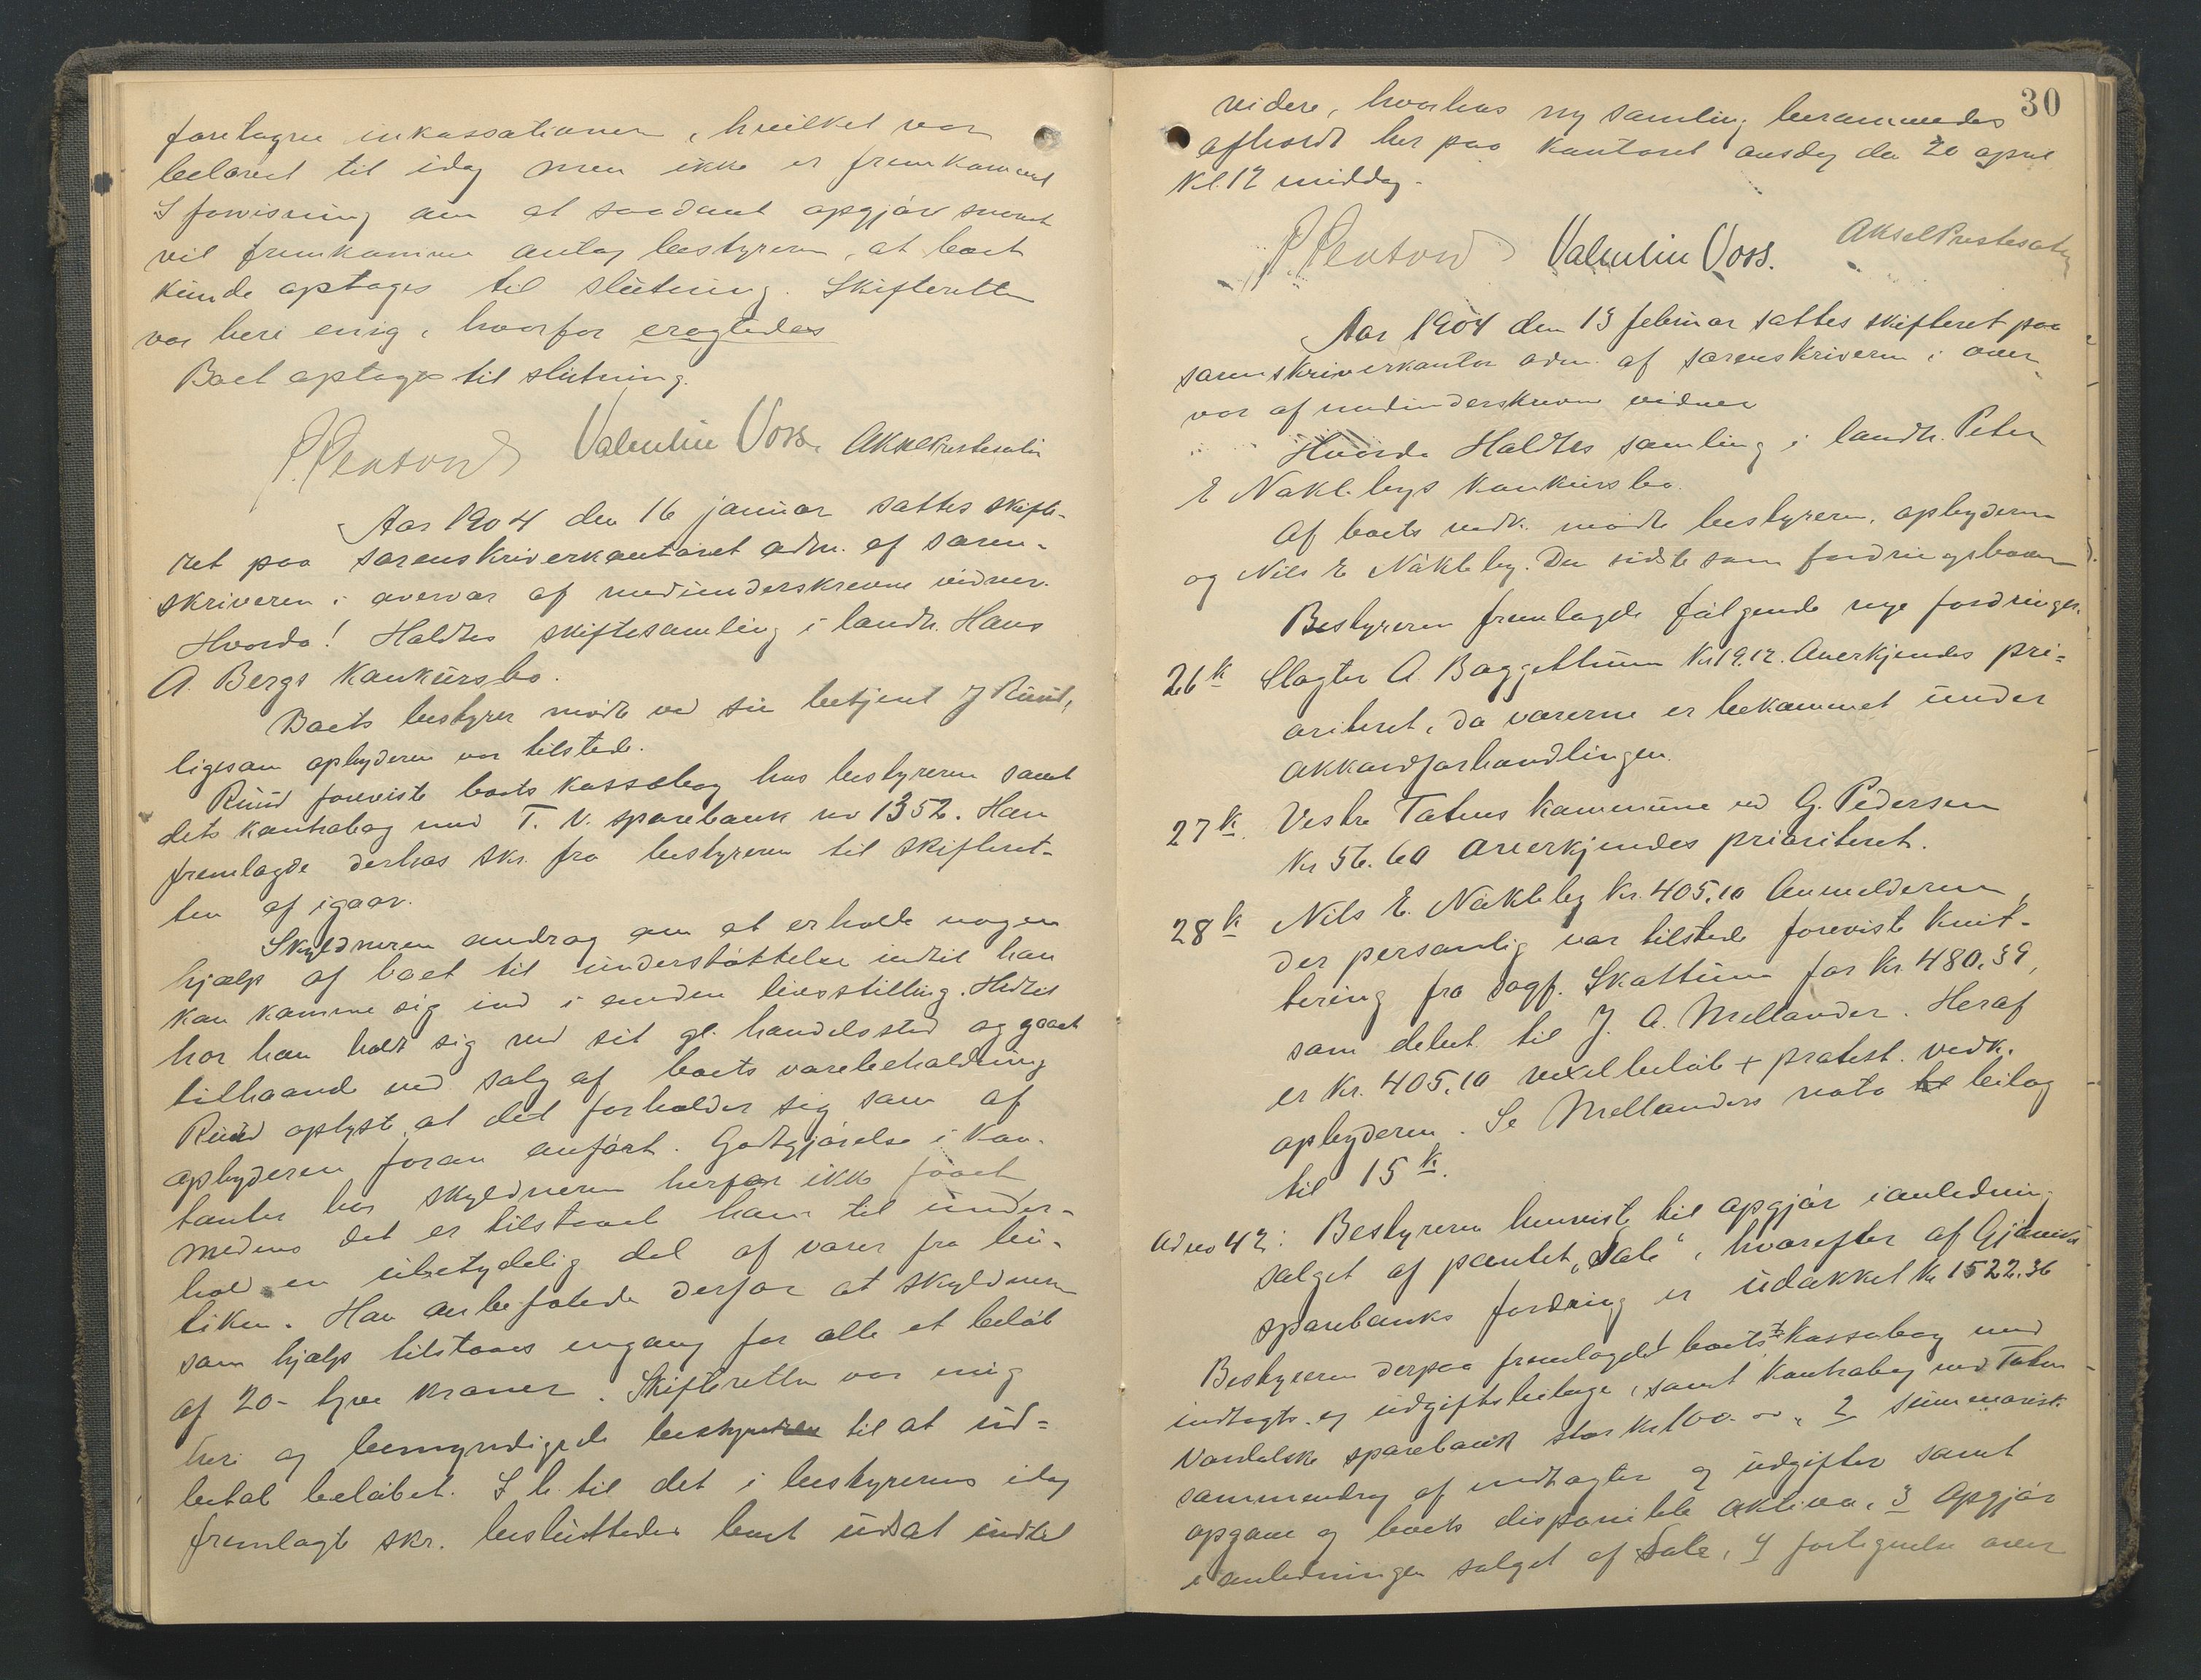 foretagne inkassationer, hvilket var
belovet til idag men ikke er fremkommet
I forvisning om at saadant opgjør snart
vil fremkomme antog bestyreren, at boet
kunde optages til slutning. Skifteretten
var heri enig, hvorfor eragtedes
Boet optages til slutning.
Valentin Voss. Aksel Prestesæter
Aar 1904 den 16 januar sattes skifte-
ret paa sorenskriverkontoret adm. af soren-
skriveren i overvær af medunderskrevne vidner.
Hvorda! Holdtes skiftesamling i landh. Hans
A. Bergs konkursbo.
Boets bestyrer mødte ved sin betjent J Ruud,
ligesom opbyderen var tilstede.
Ruud foreviste boets kassabog hos bestyreren samt
dets kontrabog med T. V. sparebank no 1352. Han
fremlagde derhos skr. fra bestyreren til skifteret-
ten af igaar.
Skyldneren androg om at erholde nogen
hjælp af boet til understøttelse indtil han
kan komme sig ind i anden livsstilling. Hidtil
har han holdt sig ved sit gl. handelssted og gaaet
tilhaande ved salg af boets varebeholdning
Ruud oplyste, at det forholder sig som af
opbyderen foran anført. Godtgjørelse i kon-
tanter har skyldneren herfor ikke faaet
medens det er tilstaaet ham til under-
hold en ubetydelig del af varer fra bu-
tiken. Han anbefalede derfor at skyldneren
som hjælp tilstaaes engang for alle et beløb
af 20 - tyve kroner. Skifteretten var enig
heri og bemyndigede bestyreren til at ud-
betale beløbet. I h. til det i bestyrerens idag
fremlagte skr. besluttedes boet udsat indtil
30
videre, hvorhos ny samling berammedes
afholdt her paa kontoret onsdag den 20 april
kl. 12 middag.
Valentin Voss. Aksel Prestesæter
Aar 1904 den 13 februar sattes skifteret paa
sorenskriverkontor adm. af sorenskriveren i over-
vær af medunderskrevne vidner
Hvorda Holdtes samling i landh. Peter
E Naklebys konkursbo.
Af boets vedk. mødte bestyreren, opbyderen
og Nils E Nakleby. Den sidste som fordringshaver
Bestyreren fremlagde følgende nye fordringer.
26 k Slagter A. Baggettun Kr 19.12. Anerkjendes pri-
oriteret, da varerne er bekommet under
akkordforhandlingen.
27 k. Vestre Totens kommune ved G. Pedersen
Kr 56.60 anerkjendes prioriteret.
28 k Nils E. Nakleby Kr. 405,10 Anmelderen,
der personlig var tilstede foreviste kvit-
tering fra sagf. Skattum for Kr. 480,39,
som debet til J. A. Mellander. Heraf
er Kr. 405,10 vexelbeløb + protest. vedk.
opbyderen. Se Mellanders nota bilag
til 15 k.
Ad no 42: Bestyreren henviste til opgjør i anledning
salget af pantet "Dale", hvorefter af Gjøviks
sparebanks fordring er udækket Kr 1522.36
Bestyreren derpaa fremlagde 1 boets kassabog med
indtægts- og udgiftsbilage, samt kontrabog med Toten
Vardalske sparebank stor Kr 100.00, 2 summarisk
sammendrag af indtægter og udgifter samt
opgave og boets disponible aktiva, 3 Opgjør
i anledningen salget af Dale, 4 fortegnelse over